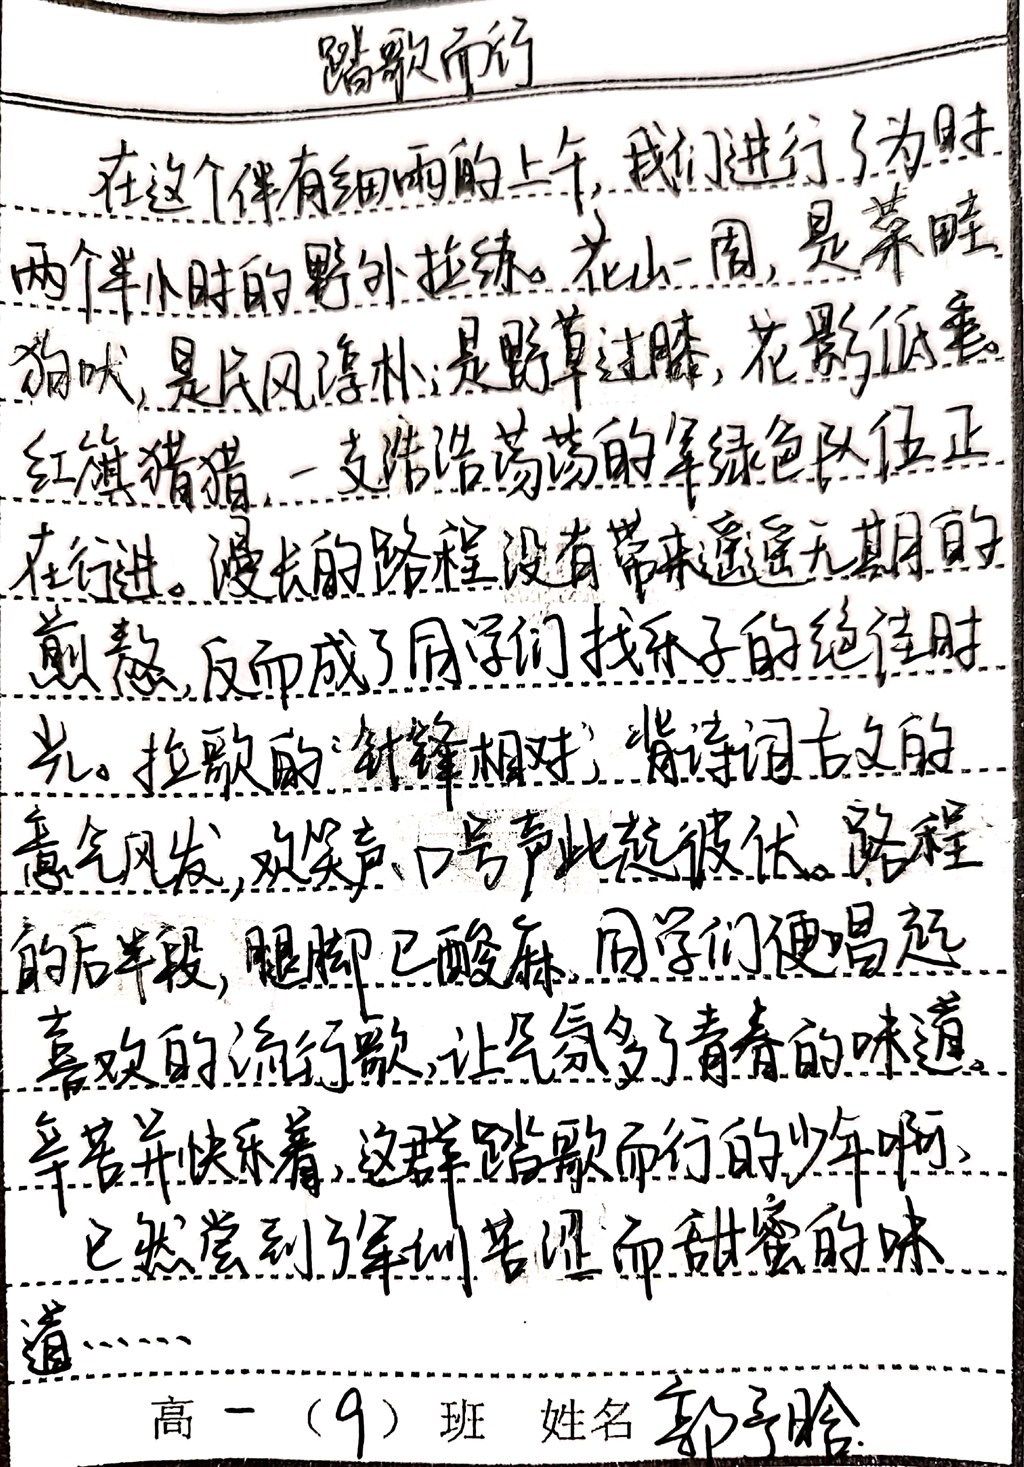 踏歌而行
在这个伴有细雨的上午,我们进行了为时
两个半小时的野外拉练。花山一周,是菜畦
狗吠,是民风淳朴;是野草过膝,花影低垂。
红旗猎猎,一支浩浩荡荡的军绿色队伍正
在行进。漫长的路程没有带来遥遥无期的
煎熬,反而成了同学们找乐子的绝佳时
光。拉歌的“针锋相对”,背诗词古文的
意气风发,欢笑声、口号声此起彼伏。路程
的后半段,腿脚已酸麻,同学们便唱起
喜欢的流行歌,让气氛多了青春的味道。
辛苦并快乐着,这群踏歌而行的少年啊、
已然尝到了军训苦涩而甜蜜的味
道……
高一(9)班 姓名 郭予晗